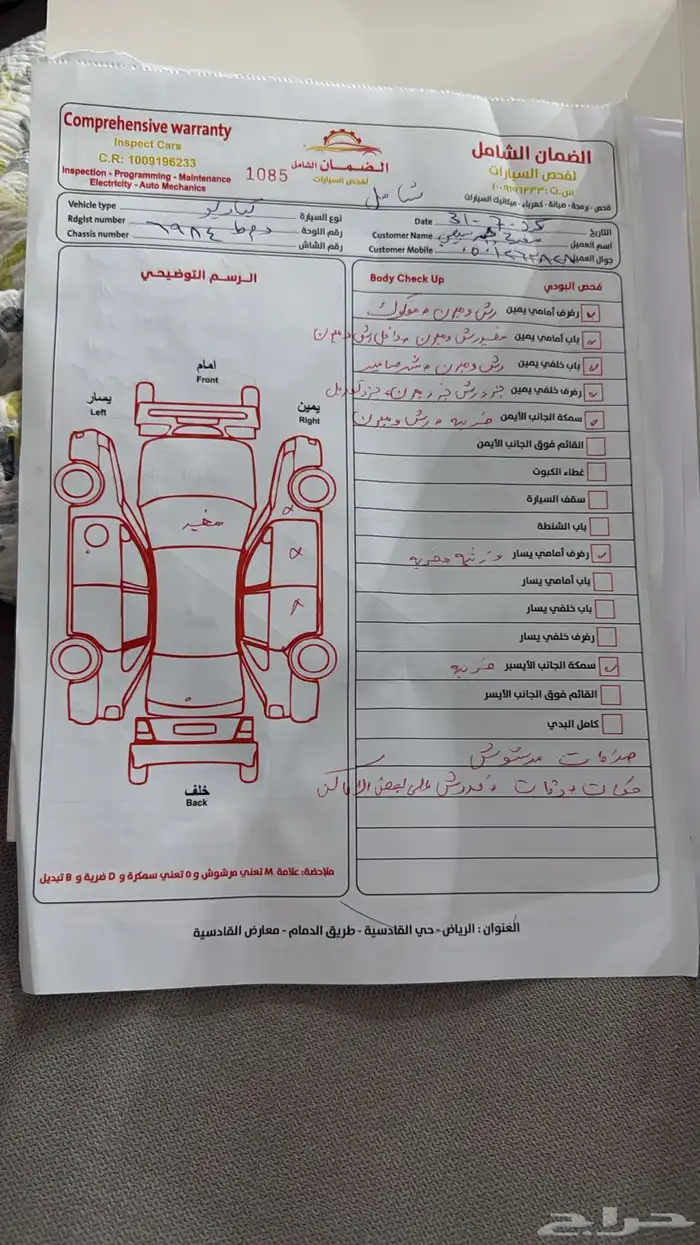 Comprehensive warranty
Inspect Cars
C.R: 1009196233
Inspection - Programming - Maintenance
Electricity - Auto Mechanics
1085
الضمان الشامل
لفحص السيارات
شامل
الضمان الشامل
لفحص السيارات
س.ت: ١٠٠٩١٩٦٢٣٣
فحص - برمجة - صيانة - كهرباء - ميكانيك السيارات
Vehicle type نوع السيارة
Rdgist number ٦٩٨٤ رقم اللوحة
Chassis number رقم الشاش
Date 31-7-25 التاريخ
Customer Name اسم العميل
Customer Mobile جوال العميل
الرسم التوضيحي
امام
Front
يسار
Left
يمين
Right
مغير
خلف
Back
ملاحضة: علامة M تعني مرشوش و o تعني سمكرة و D ضربة و B تبديل
Body Check Up فحص البودي
رفرف أمامي يمين رش ومعجون + مفكوك
باب أمامي يمين مغير رش ومعجون + داخل رش ومعجون
باب خلفي يمين رش ومعجون +
رفرف خلفي يمين
سمكة الجانب الأيمن ضربه + رش ومعجون
القائم فوق الجانب الأيمن
غطاء الكبوت
سقف السيارة
باب الشنطة
رفرف أمامي يسار
باب أمامي يسار
باب خلفي يسار
رفرف خلفي يسار
سمكة الجانب الأيسر ضربه
القائم فوق الجانب الأيسر
كامل البدي
صدامات مرشوش
حكات + دقات + رش على بعض الاماكن
العنوان : الرياض - حي القادسية - طريق الدمام - معارض القادسية
حراج